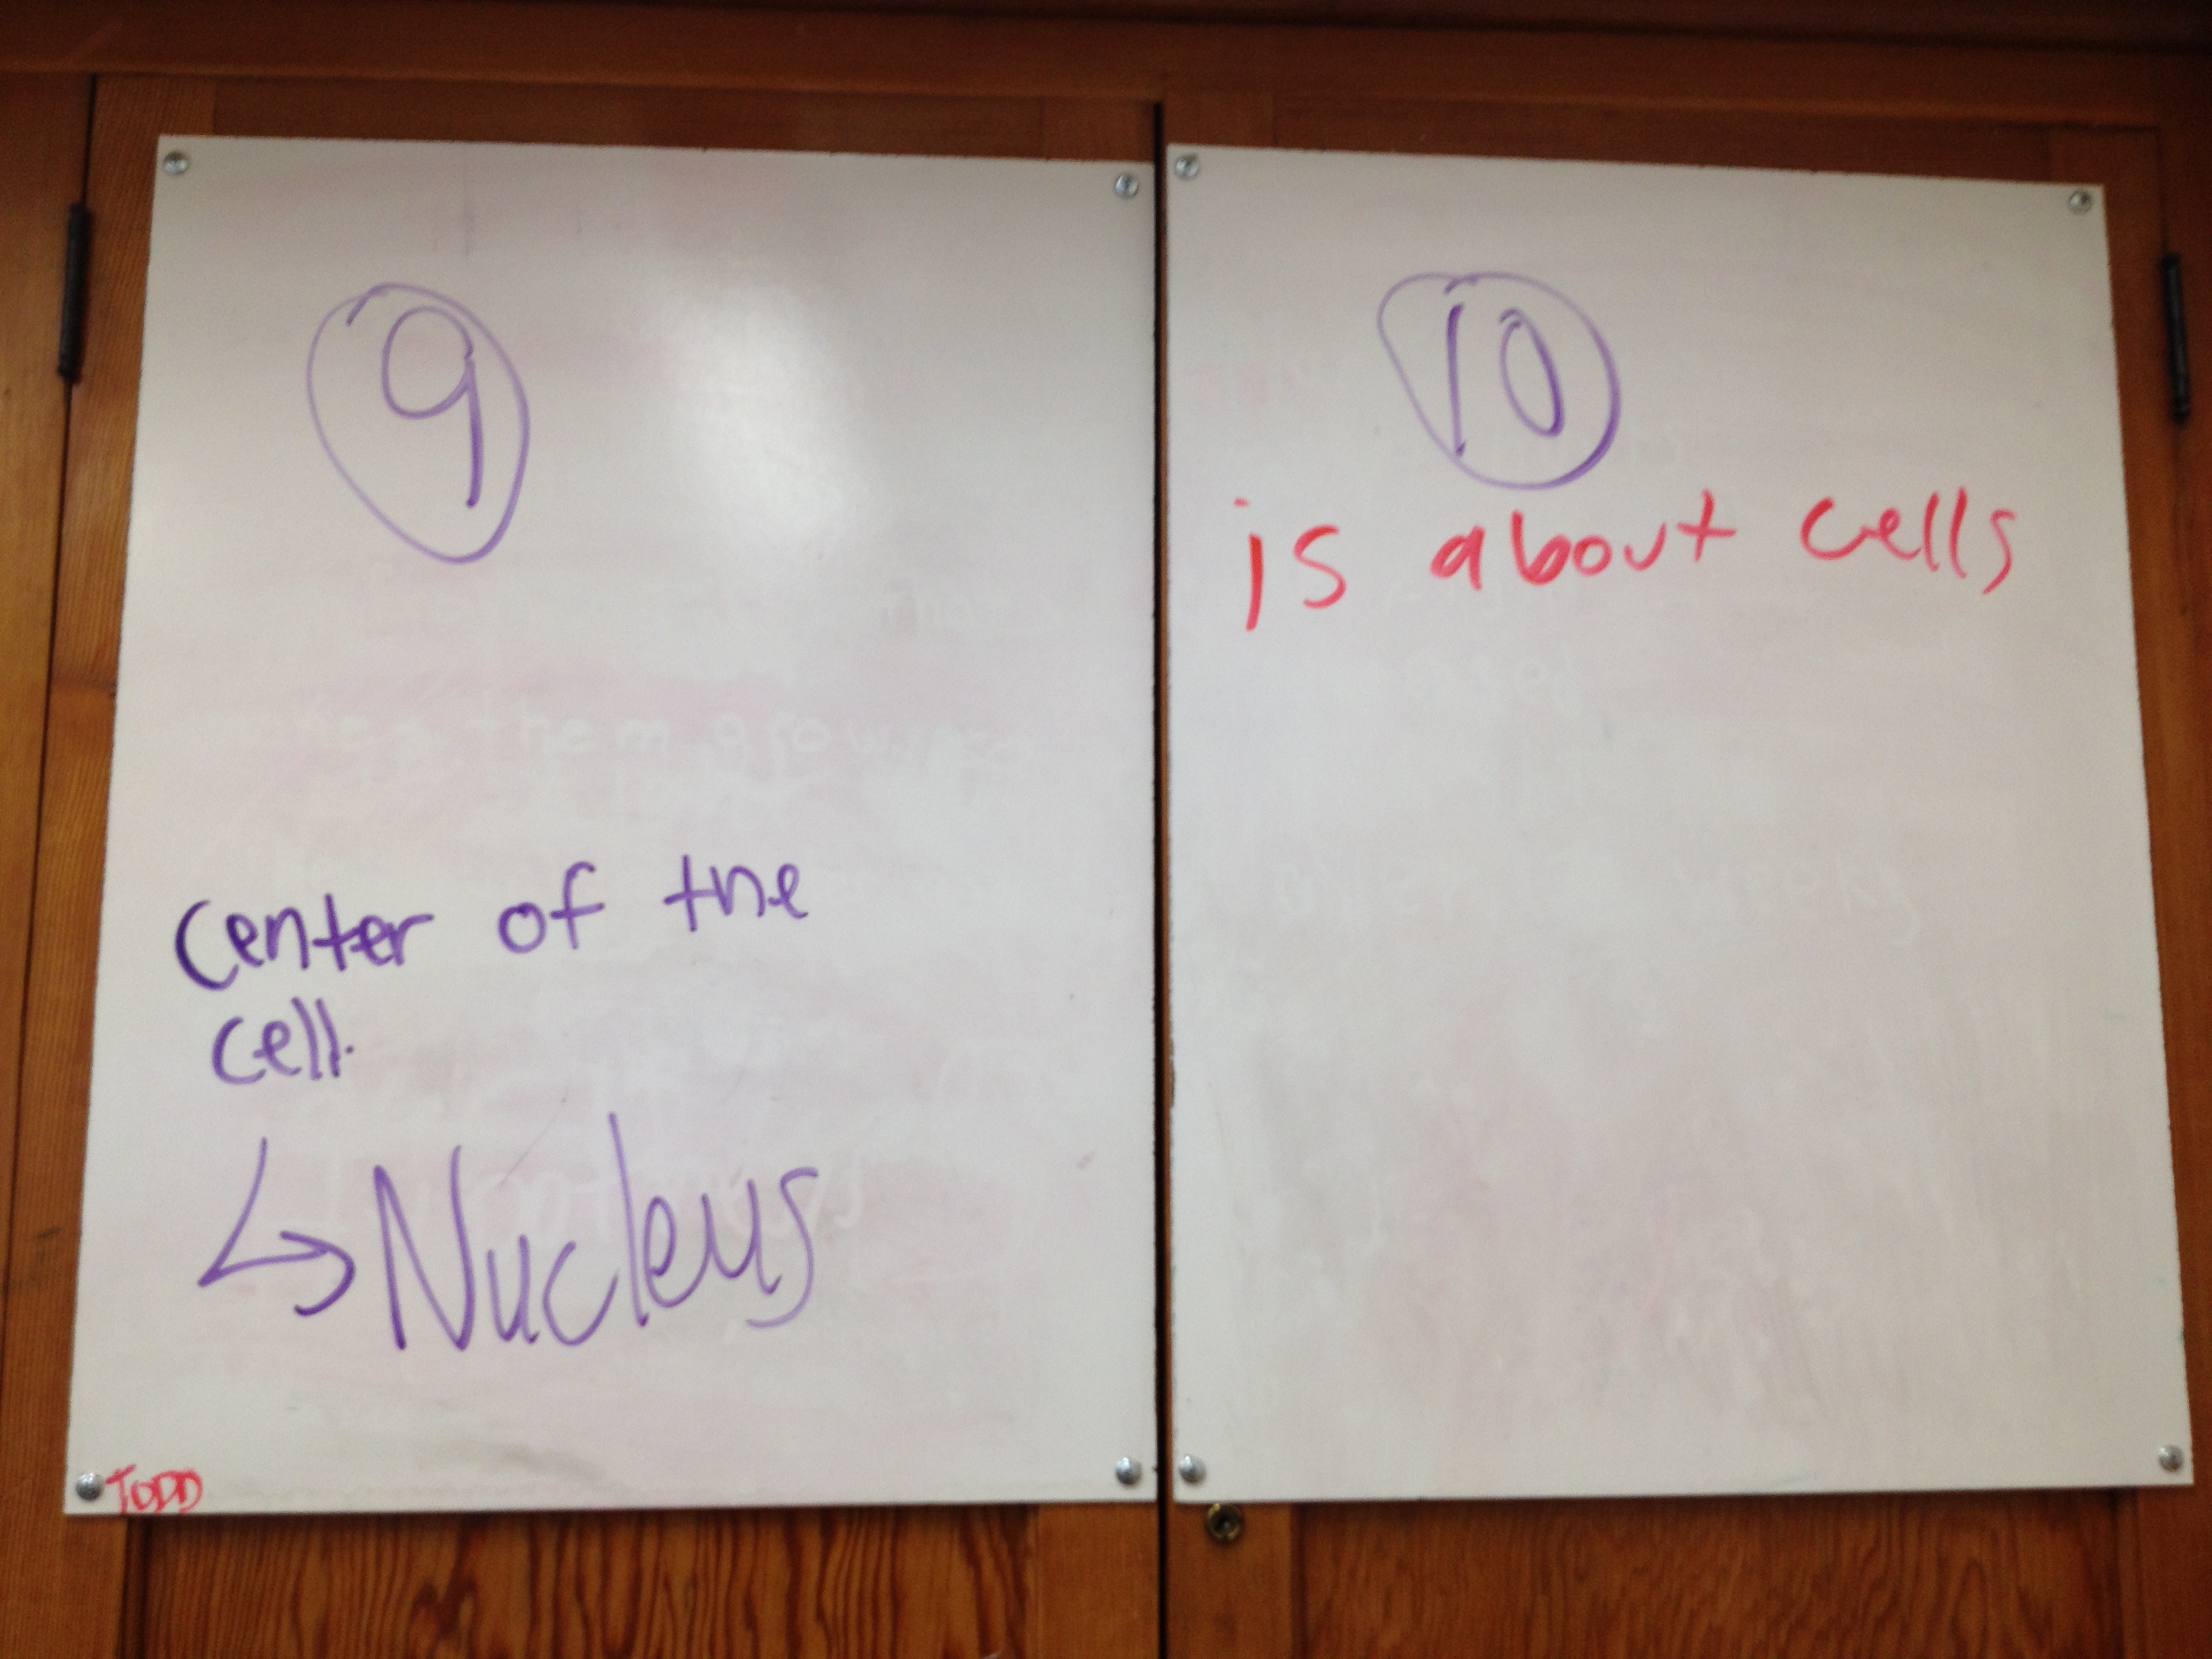 9
center of the
cell.
Nucleus
TODD
10
is about cells